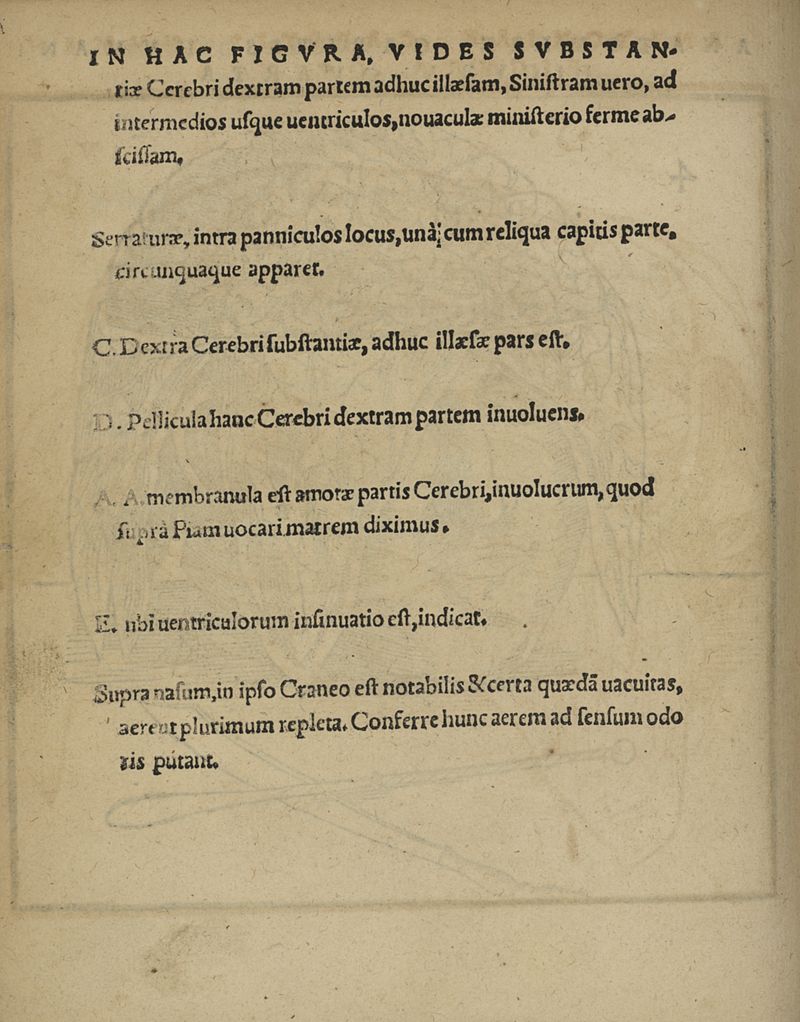 IN HAC FIGVRA, VIDES SVBSTAN-
tiæ Cerebri dextram partem adhuc illæſam, Siniſtram uero, ad
intermedios uſque uentriculos, nouaculæ miniſterio ferme ab-
ſciſſam.
Serraturæ, intra panniculos locus, unà; cum reliqua capitis parte.
circunquaque apparet.
C. Dextra Cerebri ſubſtantiæ, adhuc illæſæ pars eſt.
D. Pellicula hanc Cerebri dextram partem inuoluens.
A. A. membranula eſt amotæ partis Cerebri, inuolucrum, quod
ſuprà Piam uocari matrem diximus.
E. ubi uentriculorum inſinuatio eſt, indicat.
Supra naſum, in ipſo Craneo eſt notabilis & certa quædā uacuitas,
aere ut plurimum repleta. Conferre hunc aerem ad ſenſum odo
ris putant.